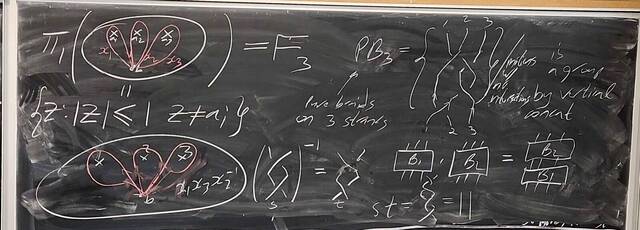 π₁( x₁ x₂ x₃ ) = F₃
{z : |z| ≤ 1 z ≠ aᵢ}
x₁ x₃ x₂⁻¹
b
PB₃ =
1 2 3
1 2 3
pure braids
on 3 strands
is
a group
by vertical
concat
( )⁻¹ =
s t
B₁ · B₂ = B₂
B₁
st = = ||